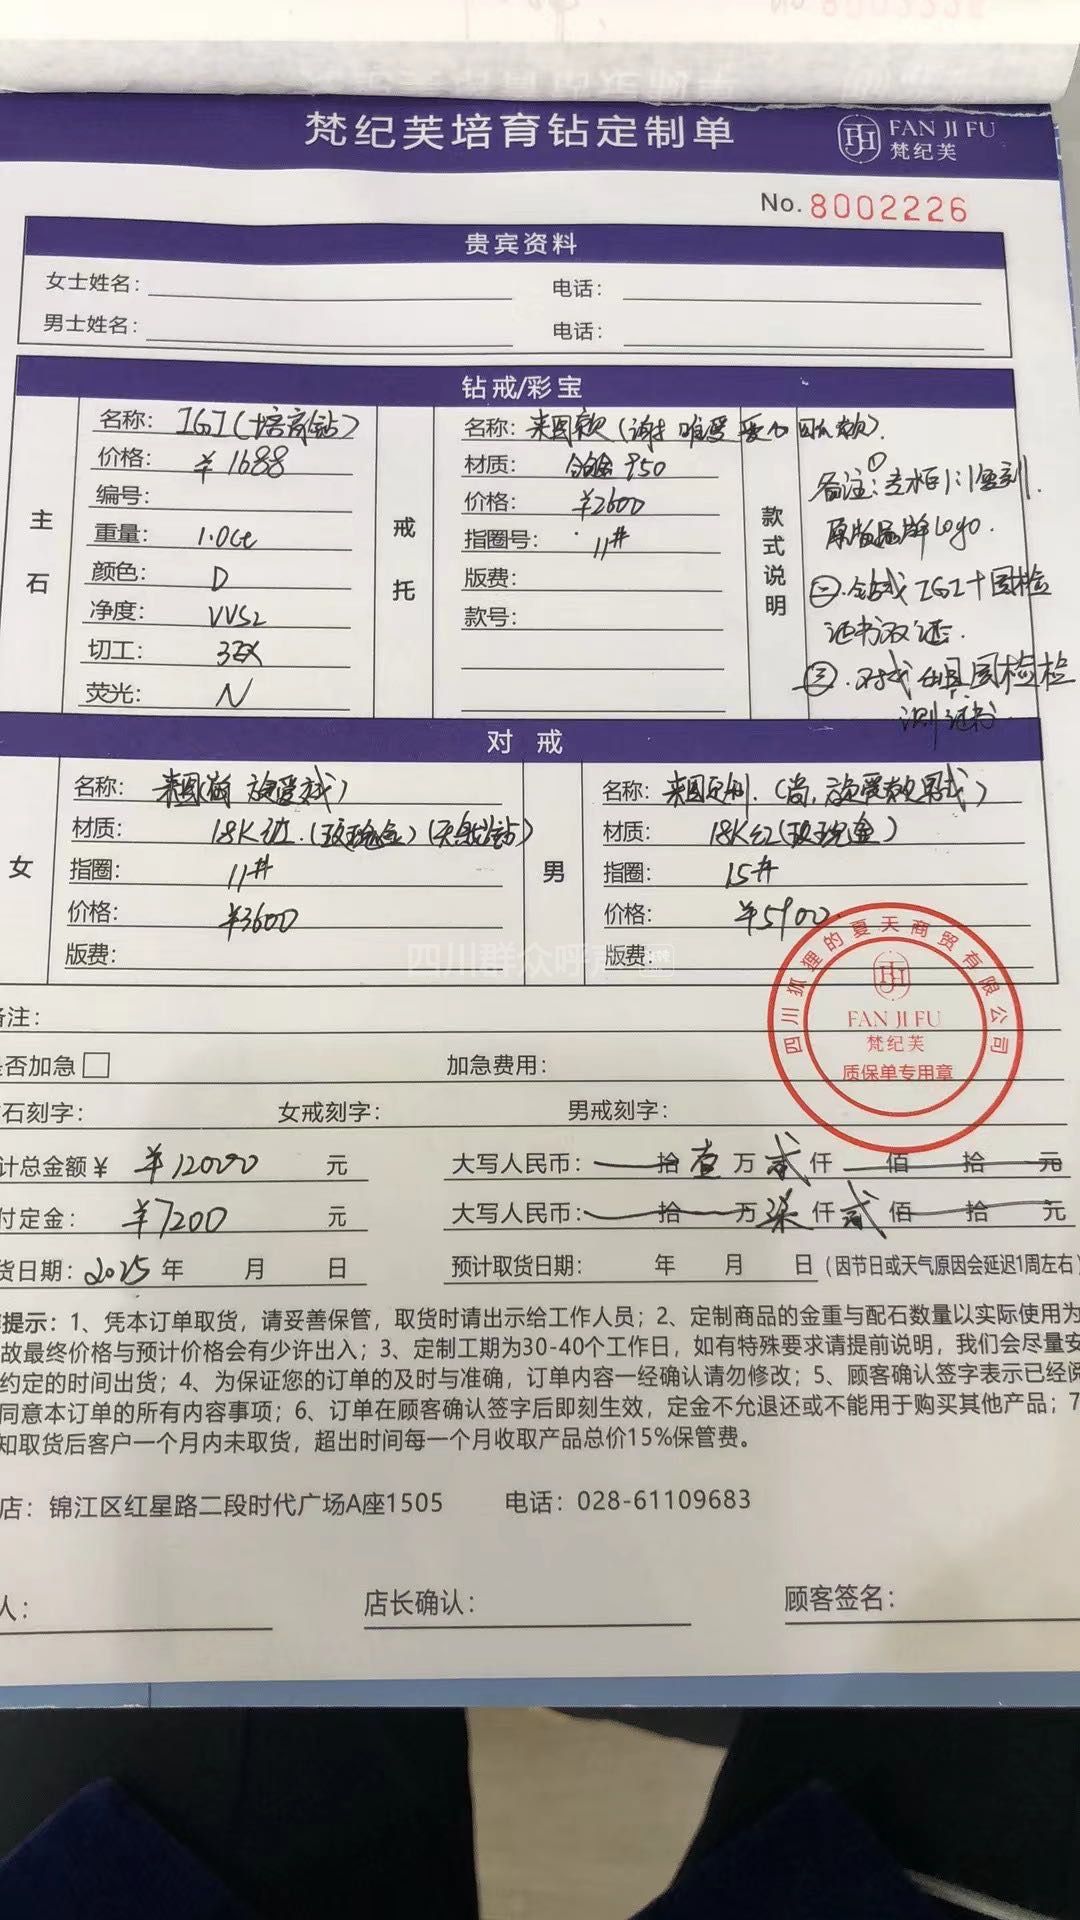 梵纪芙培育钻定制单
FAN JI FU
梵纪芙
No. 8002226
贵宾资料
女士姓名： 电话：
男士姓名： 电话：
钻戒/彩宝
主石
名称：IGI（培育钻）
价格：¥1688
编号：
重量：1.0ct
颜色：D
净度：VVS2
切工：3EX
荧光：N
戒托
名称：来图款（谢
材质：铂金950
价格：¥2600
指圈号：11#
版费：
款号：
款式说明
备注：① 1:1复刻.
原版品牌logo.
②.钻戒IGI+国检
证书双证.
③.对戒 国检检
测证书
对戒
女
名称：来图
材质：18K红.（玫瑰金）（天然钻）
指圈：11#
价格：¥3600
版费：
男
名称：来图
材质：18K红（玫瑰金）
指圈：15#
价格：¥5900
版费：
四川群众呼声
四川狐狸的夏天商贸有限公司
FAN JI FU
梵纪芙
质保单专用章
备注：
是否加急 加急费用：
石刻字： 女戒刻字： 男戒刻字：
计总金额¥ ¥12000 元 大写人民币： 拾壹万贰仟 佰 拾 元
付定金：¥7200 元 大写人民币： 拾 万柒仟贰佰 拾 元
货日期：2025年 月 日 预计取货日期： 年 月 日（因节日或天气原因会延迟1周左右）
提示：1、凭本订单取货，请妥善保管，取货时请出示给工作人员；2、定制商品的金重与配石数量以实际使用为
故最终价格与预计价格会有少许出入；3、定制工期为30-40个工作日，如有特殊要求请提前说明，我们会尽量安
约定的时间出货；4、为保证您的订单的及时与准确，订单内容一经确认请勿修改；5、顾客确认签字表示已经阅
同意本订单的所有内容事项；6、订单在顾客确认签字后即刻生效，定金不允退还或不能用于购买其他产品；7
知取货后客户一个月内未取货，超出时间每一个月收取产品总价15%保管费。
店：锦江区红星路二段时代广场A座1505 电话：028-61109683
人： 店长确认： 顾客签名：